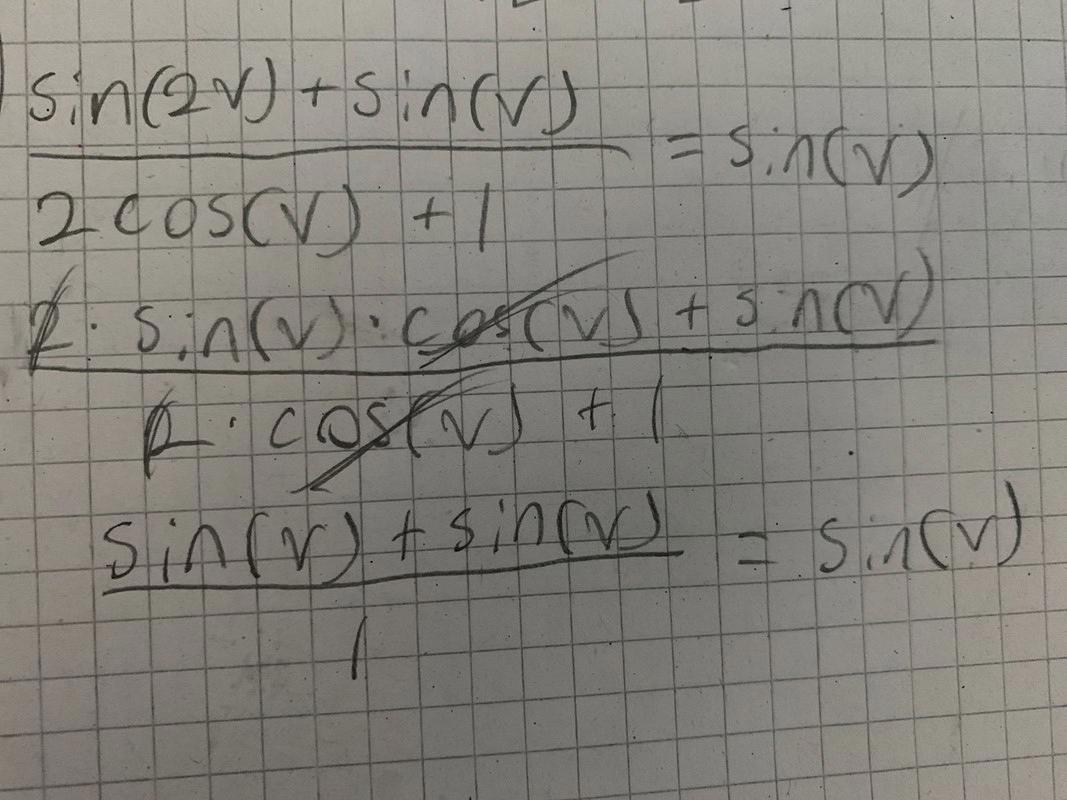 sin(2v) + sin(v)
= sin(v)
2 cos(v) + 1
2 · sin(v) · cos(v) + sin(v)
2 · cos(v) + 1
sin(v) + sin(v)
= sin(v)
1